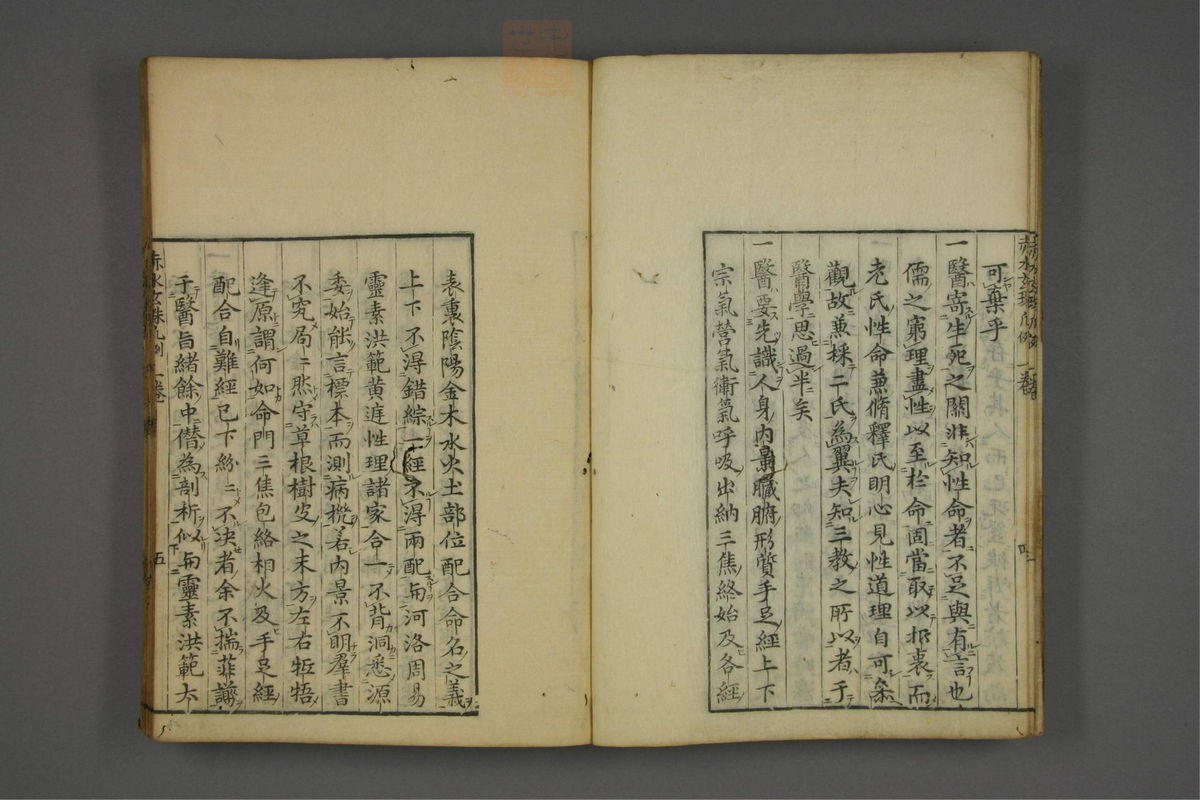 可棄乎
一醫寄生死之關非知性命者不足與有言也
儒之窮理盡性以至於命固當取以折衷而
老氏性命兼脩釋氏明心見性道理自可參
觀故兼採二氏為翼夫知三教之所以者于
醫學思過半矣
一醫要先識人身內景臟腑形質手足經上下
宗氣營氣衛氣呼吸出納三焦終始及各經
表裏陰陽金木水火土部位配合命名之義
上下不得錯綜一經不得兩配與河洛周易
靈素洪範黄庭性理諸家合一不背洞悉源
委始能言標本而測病機若內景不明羣書
不究局局然守草根樹皮之末方左右牴牾
逢原謂何如命門三焦包絡相火及手足經
配合自難經已下紛紛不决者余不揣菲謭
于醫旨緒餘中僭為剖析似與靈素洪範大
赤水玄珠凡例 一卷 五